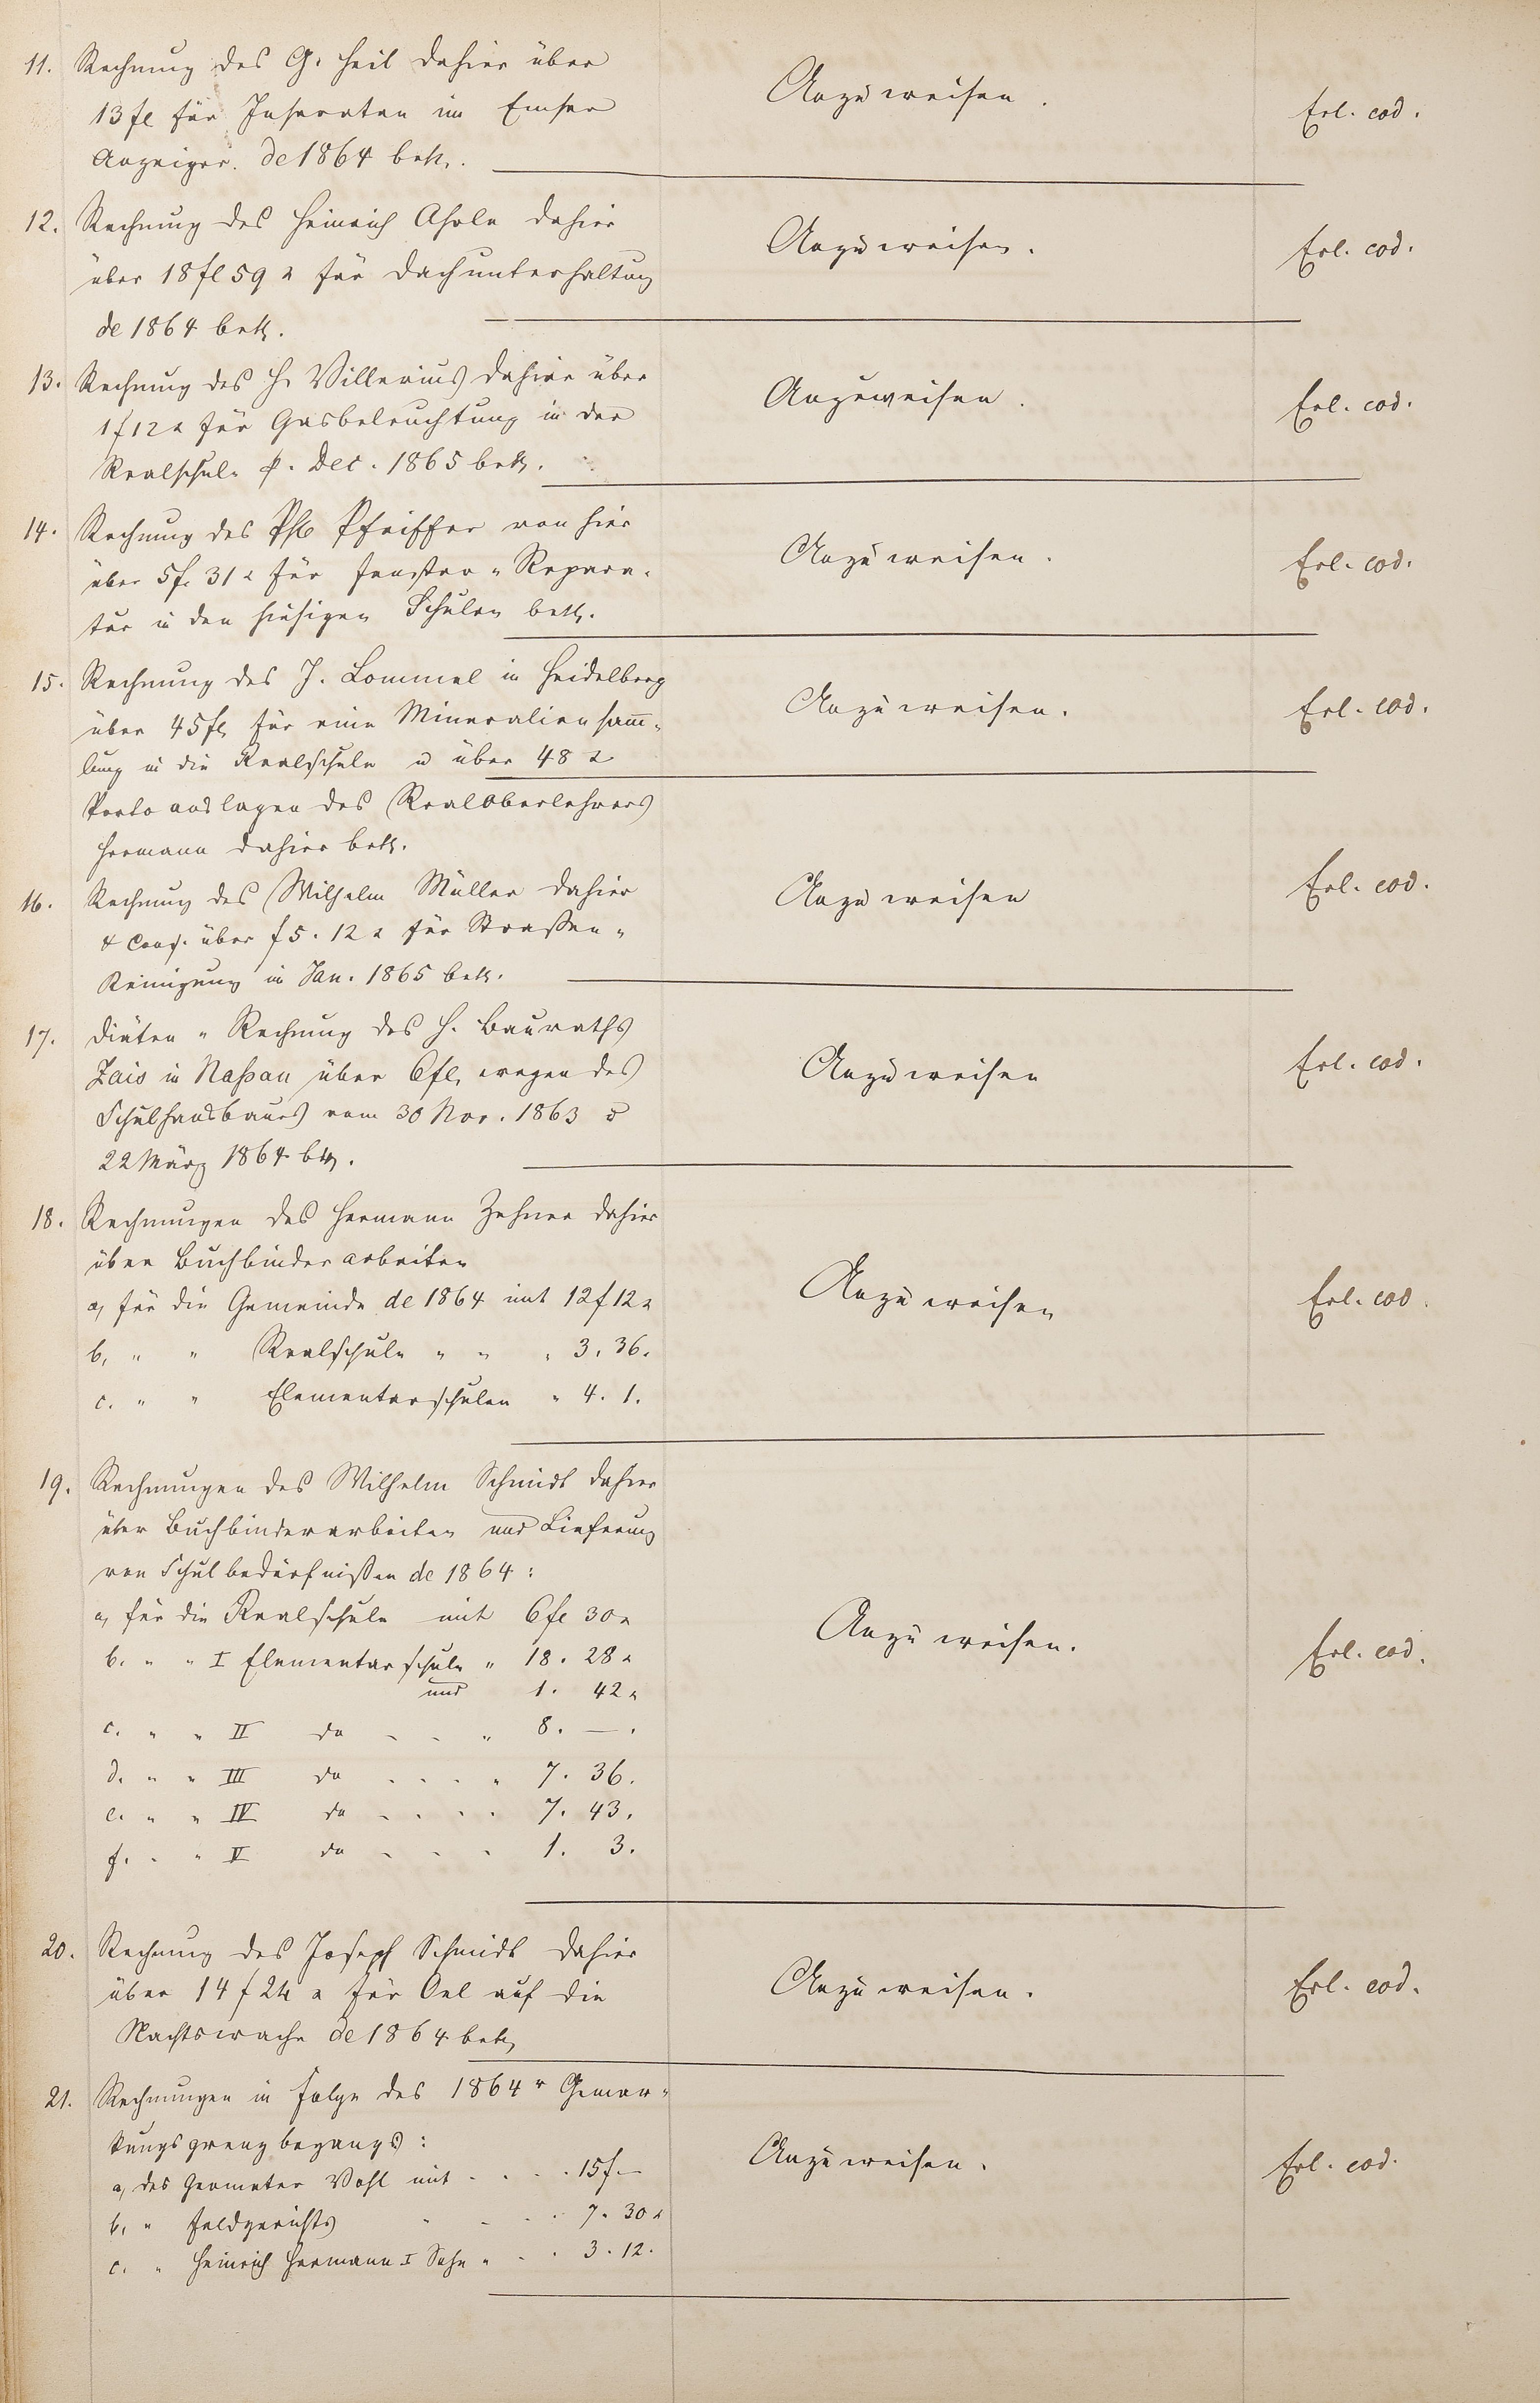 11. Rechnung des G. Heil dahier über
13 fl für Inseraten im Emser
Anzeiger. de 1864 betr.
Anzuweisen.
Erl. eod.
12. Rechnung des Heinrich dahier
über 18 fl 59 x für Dachunterhaltung
de 1864 betr.
Anzuweisen.
Erl. eod.
13. Rechnung des H. Villerius dahier über
1 f 12 x für Gasbeleuchtung in der
Realschule p. Dec. 1865 betr.
Anzuweisen.
Erl. eod.
14. Rechnung des Phil Pfeiffer von hier
über 5 f. 31 x für Fenster-Repara-
tur in den hiesigen Schulen betr.
Anzuweisen.
Erl. eod.
15. Rechnung des J. Lommel in Heidelberg
über 45 fl für eine Mineraliensam̅-
lung in die Realschule u über 48 x
Portoauslagen des Realoberlehrers
Hermann dahier betr.
Anzuweisen.
Erl. eod.
16. Rechnung des Wilhelm Müller dahier
& Cons. über f 5. 12 x für Straßen-
Reinigung in Jan. 1865 betr.
Anzuweisen
Erl. eod.
17. Diäten-Rechnung des H. Bauraths
Zais in Naßau über 6 fl, wegen des
Schulhausbaues vom 30 Nov. 1863 u
22 März 1864 btr.
Anzuweisen
Erl. eod.
18. Rechnungen des Hermann Zehner dahier
über Buchbinderarbeiten
a, für die Gemeinde de 1864 mit 12 f 12 x
b, " " Realschule " " " 3. 36.
c. " " Elementarschulen " 4. 1.
Anzuweisen
Erl. eod.
19. Rechnungen des Wilhelm Schmidt dahier
über Buchbinderarbeiten und Lieferung
von Schulbedürfnißen de 1864:
a, für die Realschule mit 6 fl 30 x
b. " " I Elementarschule " 18. 28 x
und 1. 42 x
c. " " II do " " " 8. — .
d. " " III do . . . " 7. 36.
e. " " IV do . . . . 7. 43.
f. " " V do . . . 1. 3.
Anzuweisen.
Erl. eod.
20. Rechnung des Joseph Schmidt dahier
über 14 f 24 x für Oel auf die
Nachtswache de 1864 betr,
Anzuweisen.
Erl. eod.
21. Rechnungen in Folge des 1864r Gemar-
kungsgrenzbegangs:
a, des Geometer Vohl mit . . . . 15 f —
b, " Feldgerichts . . . . 7. 30 x
c. " Heinrich Hermann I Sohn " . . 3. 12.
Anzuweisen.
Erl. eod.